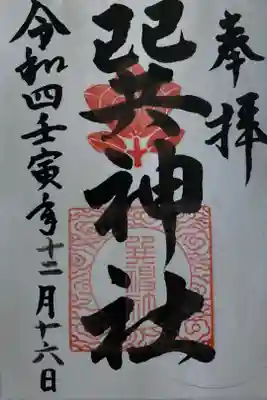 奉拝
巽神社
令和四壬寅年十二月十六日